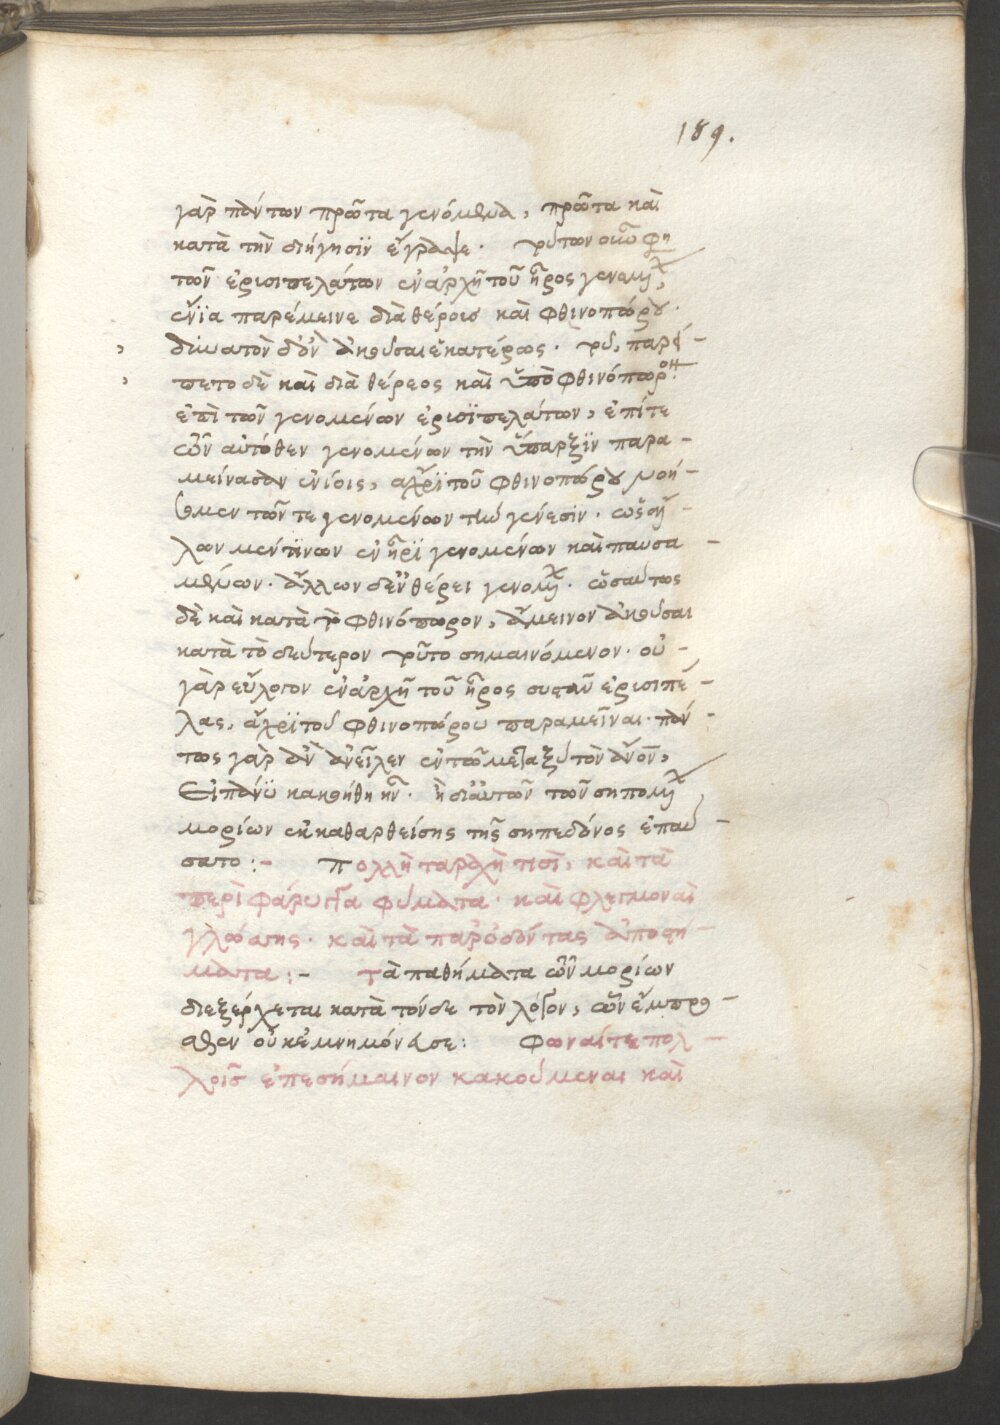 189.
γὰρ πάντων πρῶτα γενόμενα, πρῶτα καὶ
κατὰ τὴν διήγησϊν ἔγραψε.
τῶν ἐρισιπελάτων ἐν ἀρχῇ τοῦ ἦρος
ἔνϊα παρέμεινε διὰ θέρους καὶ φθινοπώρου.
δυνατὸν ἀκοῦσαι ἑκατέρως.
πετο δὲ καὶ διὰ θέρεος καὶ ὑπὸ φθινόπωρον
ἐπὶ τῶν γενομένων ἐρισϊπελάτων, ἐπίτε
οὖν αὐτόθεν γενομένων τὴν ὕπαρξϊν παρα-
μείνασαν ἐνίοις, ἄχρϊ τοῦ φθινοπώρου νοή-
σωμεν τῶν τε γενομένων τὴν γένεσϊν.
λων μέντϊνων ἐν ἦρϊ γενομένων καὶ παυσα-
μένων. ἄλλων δ' ἐν θέρει ὡσαύτως
δὲ καὶ κατὰ τὸ φθινόπωρον, ἄμεινον ἀκοῦσαι
κατὰ τὸ δεύτερον τοῦτο σημαινόμενον. οὐ-
γὰρ εὔλογον ἐν ἀρχῇ τοῦ ἦρος συστὰν ἐρισιπέ-
λας, ἄχρϊ τοῦ φθινοπώρου παραμεῖναι. πάν-
τως γὰρ ἂν ἀνεῖλεν ἐν τῶ μεταξὺ τὸν ἄνον,
εἰ πάνϋ κακοήθη ἦν. ἢ δι' αὐτῶν τῶν
μορίων ἐκκαθαρθείσης τῆς σηπεδόνος ἐπαύ-
σατο :- Πολλὴ ταραχὴ τισὶ, καὶ τὰ
περὶ φάρυγγα φύματα. καὶ φλεγμοναὶ
γλώσσης. καὶ τὰ παρ' ὀδόντας ἀποστή-
ματα :- Τὰ παθήματα τῶν μορίων
διεξέρχεται κατὰ τόνδε τὸν λόγον, ὧν ἔμπρο-
σθεν οὐκ ἐμνημόνευσε: Φωναίτε πολ-
λοῖς ἐπεσήμαινον κακούμεναι καὶ